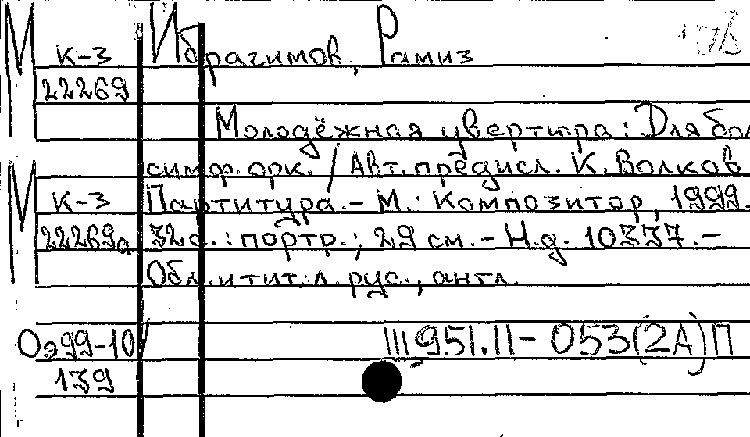 М К-3 Ибрагимов, Рамиз
22269
Молодёжная увертюра: Для бол
симф. орк. / Авт. предисл. К. Волков
М К-3 Партитура. – М.: Композитор, 1999.
22269а 32 с.: портр.; 29 см. – Н.д. 10337. –
Обл. и тит. л. рус., англ.
Оэ99-10/ Щ951.11-053(2А)П
139